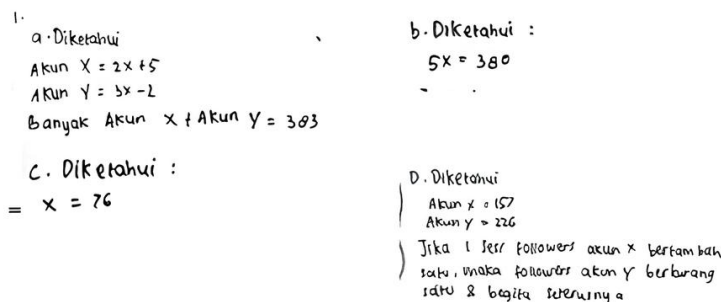 1.
a. Diketahui
Akun X = 2x+5
Akun Y = 3x-2
Banyak Akun X + Akun Y = 383
b. Diketahui :
5x = 380
C. Diketahui :
= x = 76
D. Diketahui
Akun x = 157
Akun y = 226
Jika 1 sesi followers akun x bertambah
satu, maka followers akun Y berkurang
satu & begitu seterusnya